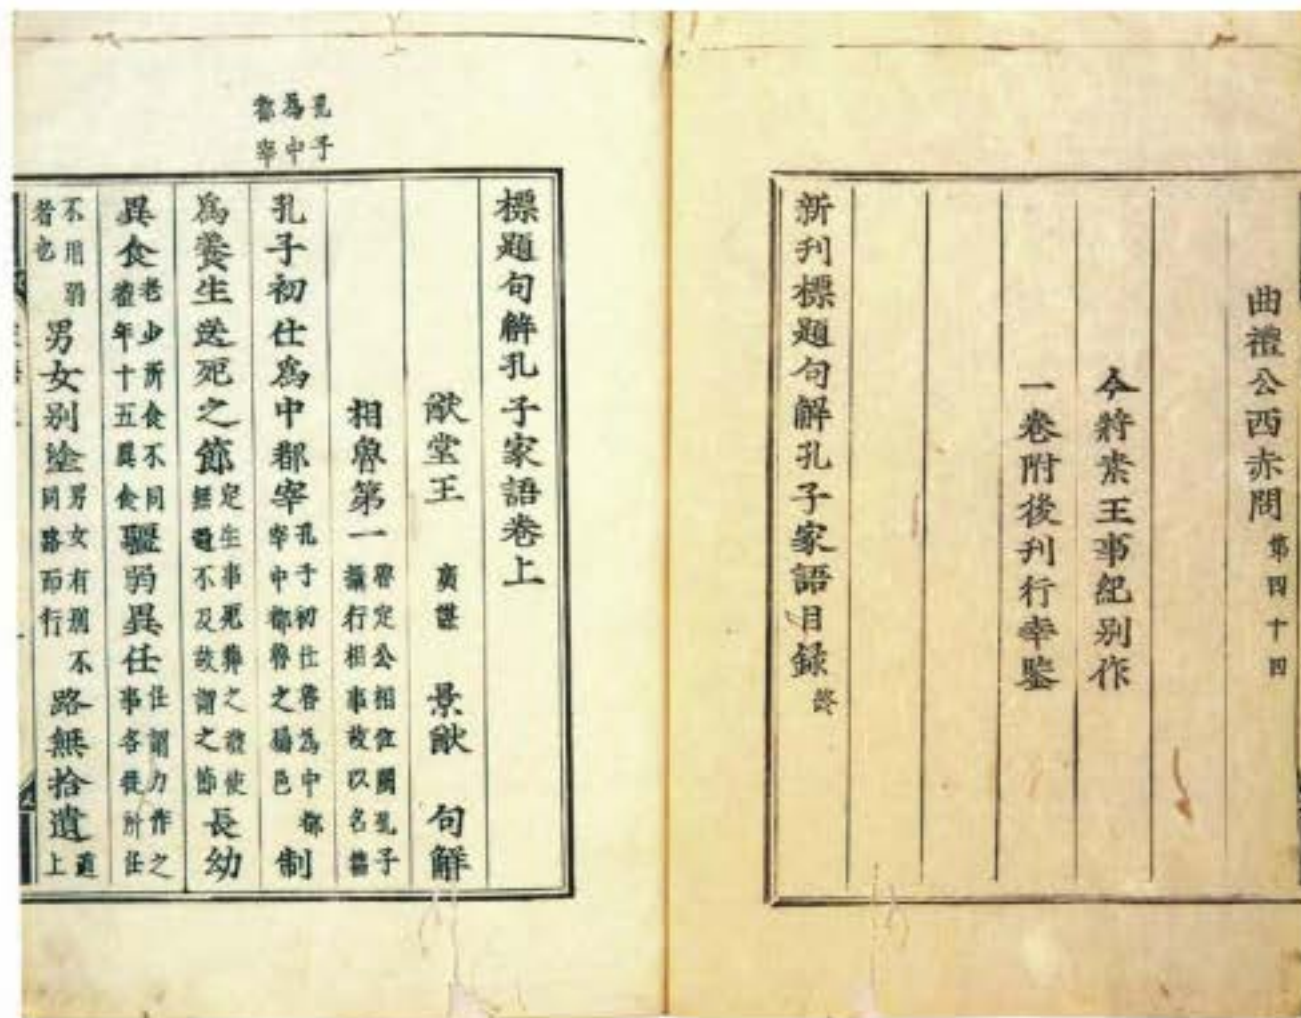 曲禮公西赤問第四十四
今將素王事紀別作
一卷附後刊行幸鑒
新刊標題句解孔子家語目錄終
孔子
為中
都宰
標題句解孔子家語卷上
猷堂王 廣謀 景猷 句解
相魯第一魯定公相位闕孔子攝行相事故以名篇
孔子初仕爲中都宰孔子初仕魯為中都宰中都魯之屬邑制
爲養生送死之節定生事死葬之禮使無過不及故謂之節長幼
異食老少所食不同禮年十五異食彊弱異任任謂力作之事各從所任
不用弱者也男女別塗男女有別不同路而行路無拾遺道上